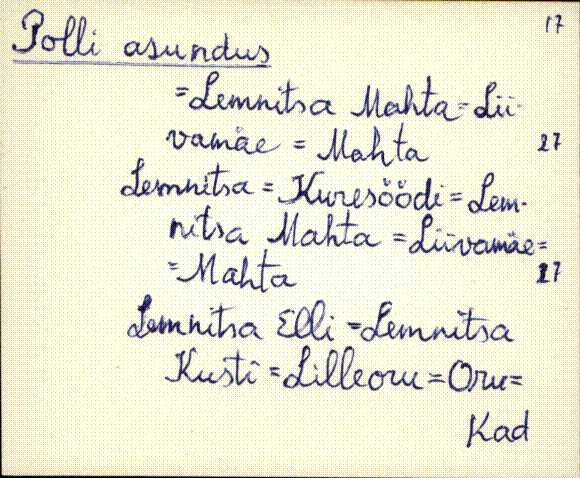 17
Polli asundus
=Lemnitsa Mahta=Lii-
vamäe = Mahta 27
Lemnitsa = Kuresöödi = Lem-
nitsa Mahta = Liivamäe=
=Mahta 27
Lemnitsa Elli =Lemnitsa
Kusti =Lilleoru=Oru=
Kad